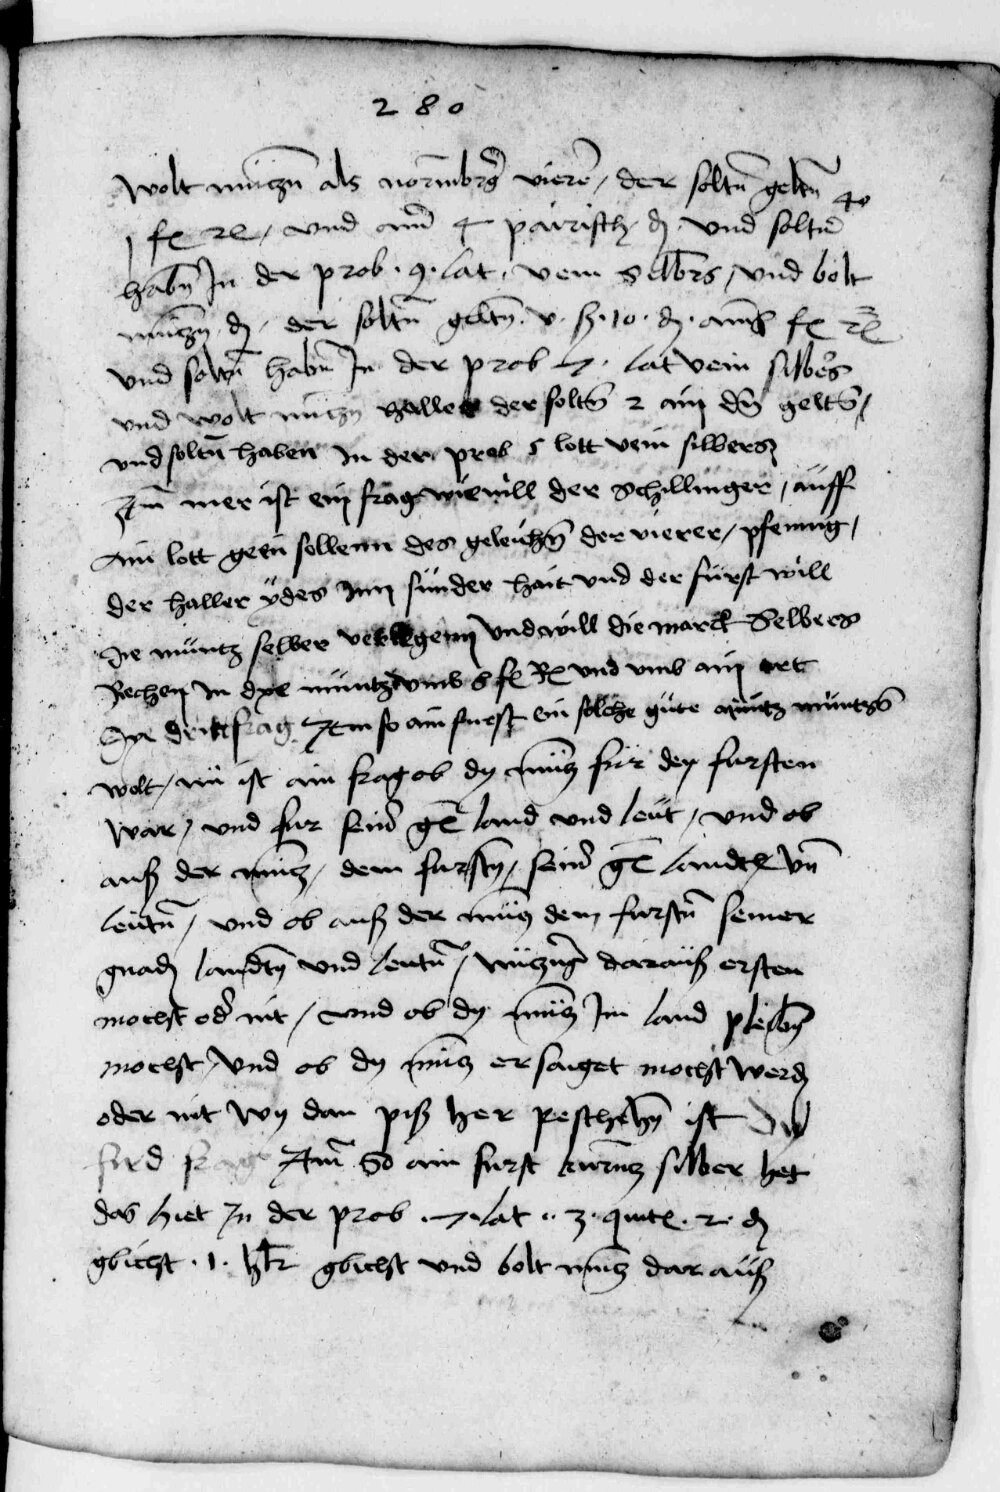 280
wolt müczn als normbrg vierer / der soltn geltn 40
1 fl rl / und ainer 4 pairisch ₰ und soltn
habn In der prob . 9 . lat . vein Selbers / und bolt
müczn ₰ der soltn geltn . v . ß . 10 . ₰ . ainß fl rl
und soltn habn In der prob 7 . lat vein silbers
und wolt müczn haller der soltn 2 ain dn geltn /
und soltn haben In der prob 5 lott vein silbers
Itm mer ist ein frag wievill der Schillinger / auff
Ain lott geen sollenn des geleichn der vierer / pfening /
der haller ydes Inn sunder hait und der fürst will
die müntz selber verlegenn und will die marck Selbers
Rechen In dye müntz umb 8 fl Rl und umb ain ort
Dye dritt frag Item so ain furst ein solche güte müntz müntzn
wolt / nü ist ain frag ob dy müncz für den fursten
war / und fur seinr gn land und leüt / und ob
auß der müncz / dem fursten / seinr gn landtn Vnd
leütn / und ob auß der müncz dem furstn seiner
gnadn landtn und leutn / nüczng darauß ersten
mocht oder nit / und ob dy müncz Im land pleibn
mocht / und ob dy müncz ersaiget mocht werdn
oder nit Wy dan piß her peschehn ist Dy
fird frag Itm So ain furst kurntz silber het
das hiet In der prob . 7 . lat .. 3 . quitl . 2 . ₰
gbicht . 1 . hlr gbicht und bolt müncz darauß